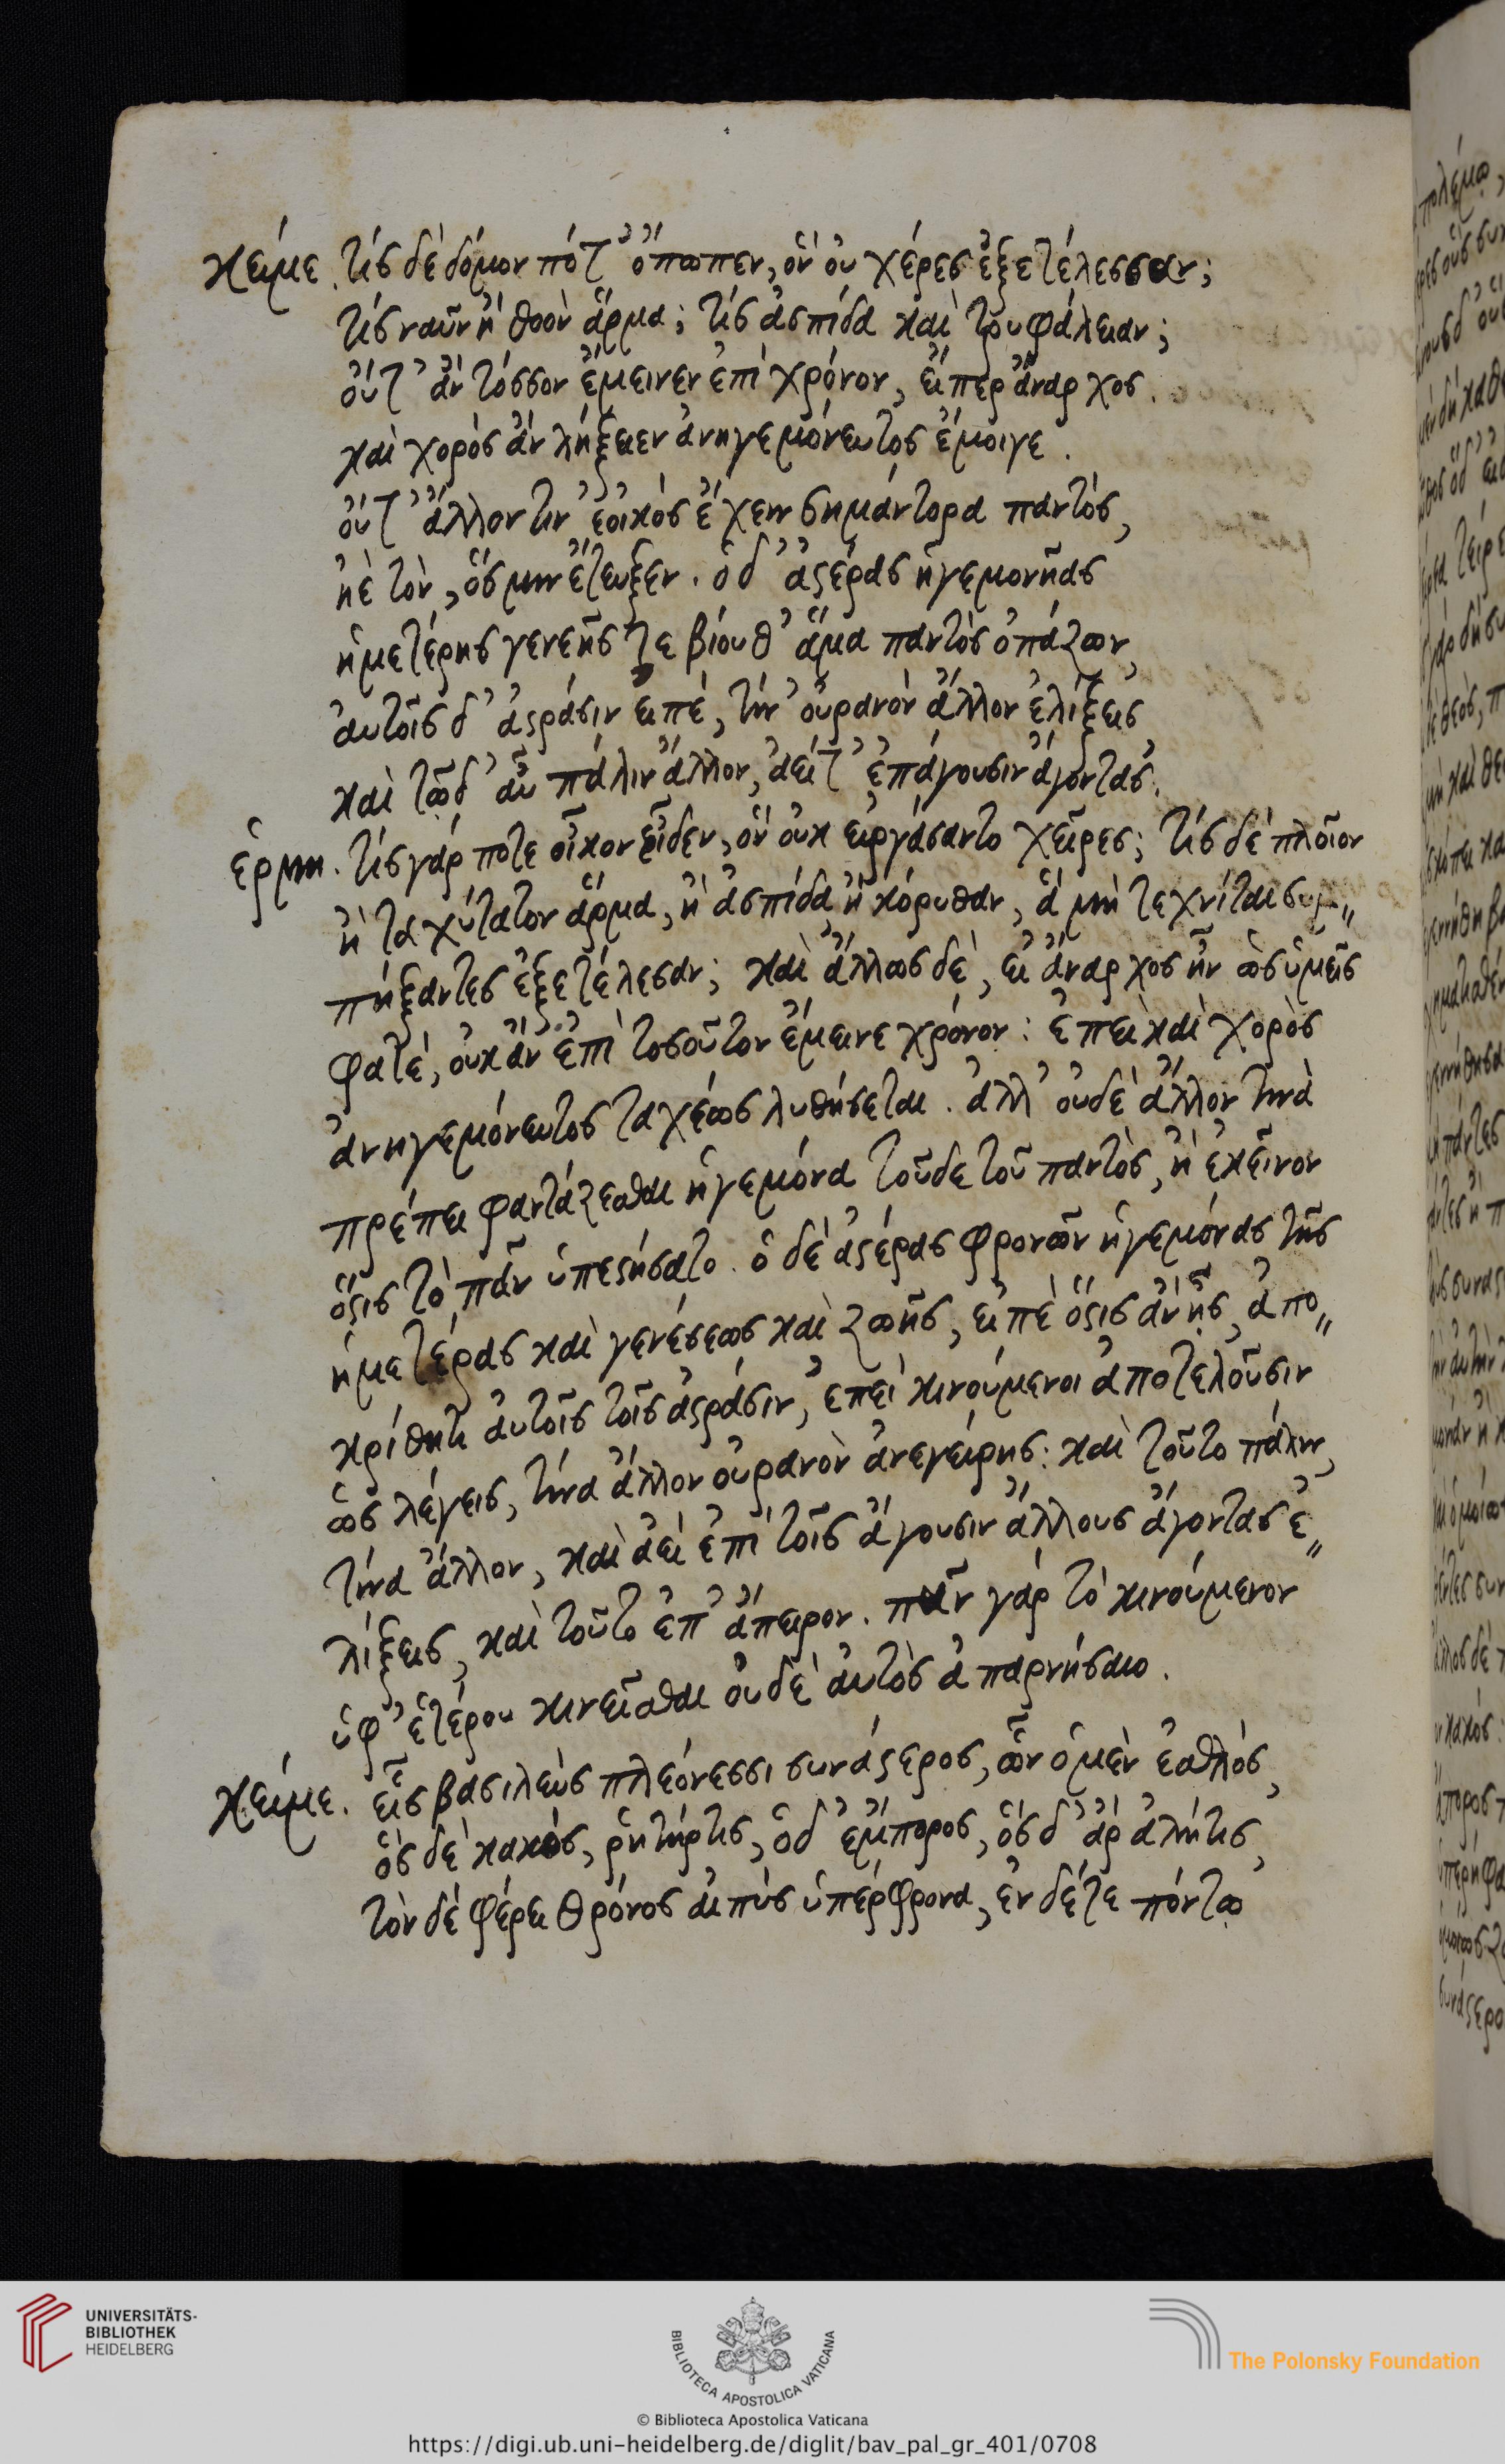 κείμε. τίς δὲ δόμον πότ' ὄπωπεν, ὃν οὐ χέρες ἐξετέλεσσαν;
τίς ναῦν ἢ θοὸν ἅρμα; τίς ἀσπίδα καὶ τρυφάλειαν;
οὔτ' ἂν τόσσον ἔμεινεν ἐπὶ χρόνον, εἴπερ ἄναρχος.
καὶ χορὸς ἂν λήξειεν ἀνηγεμόνευτος ἔμοιγε.
οὔτ' ἄλλον τιν' ἐοικὸς ἔχειν σημάντορα παντός,
ἠὲ τὸν, ὅς μιν ἔτευξεν. ὁ δ' ἀστέρας ἡγεμονῆας
ἡμετέρης γενεῆς τε βίου θ' ἅμα παντὸς ὀπάζων,
αὐτοῖς δ' ἀστράσιν εἰπέ, τίν' οὐρανὸν ἄλλον ἑλίξεις,
καὶ τῷδ' αὖ πάλιν ἄλλον, ἀεί τ' ἐπάγουσιν ἄγοντας.
ἑρμη. τίς γάρ ποτε οἶκον εἶδεν, ὃν οὐκ εἰργάσαντο χεῖρες; τίς δὲ πλοῖον
ἢ ταχύτατον ἅρμα, ἢ ἀσπίδα ἢ κόρυθαν, ἃ μὴ τεχνίται συμ„
πήξαντες ἐξετέλεσαν; καὶ ἄλλως δὲ, εἰ ἄναρχος ἦν ὡς ὑμεῖς
φατέ, οὐκ ἂν ἐπὶ τοσοῦτον ἔμεινε χρόνον: ἐπεὶ καὶ χορὸς
ἀνηγεμόνευτος ταχέως λυθήσεται. ἀλλ' οὐδὲ ἄλλον τινὰ
πρέπει φαντάζεσθαι ἡγεμόνα τοῦδε τοῦ παντὸς, ἢ ἐκεῖνον
ὅστις τὸ πᾶν ὑπεστήσατο. ὁ δὲ ἀστέρας φρονῶν ἡγεμόνας τῆς
ἡμετέρας καὶ γενέσεως καὶ ζωῆς, εἰπὲ ὅστις ἂν ᾖς, ἀπο„
κρίθητι αὐτοῖς τοῖς ἀστράσιν, ἐπεὶ κινούμενοι ἀποτελοῦσιν
ὡς λέγεις, τίνα ἄλλον οὐρανὸν ἀνεγείρῃς: καὶ τοῦτο πάλιν,
τίνα ἄλλον, καὶ ἀεὶ ἐπὶ τοῖς ἄγουσιν ἄλλους ἄγοντας ἑ„
λίξεις, καὶ τοῦτο ἐπ' ἄπειρον. πᾶν γάρ τὸ κινούμενον
ὑφ' ἑτέρου κινεῖσθαι οὐδὲ αὐτὸς ἀπαρνήσαιο.
κείμε. εἷς βασιλεὺς πλεόνεσσι συνάστερος, ὧν ὁ μὲν ἐσθλὸς,
ὃς δὲ κακὸς, ῥητήρ τις, ὃ δ' ἔμπορος, ὃς δ' ἄρ ἀλήτις,
τὸν δὲ φέρει θρόνος αἰπὺς ὑπέρφρονα, ἐν δέ τε πόντῳ
UNIVERSITÄTS-
BIBLIOTHEK
HEIDELBERG
BIBLIOTECA APOSTOLICA VATICANA
The Polonsky Foundation
© Biblioteca Apostolica Vaticana
https://digi.ub.uni-heidelberg.de/diglit/bav_pal_gr_401/0708